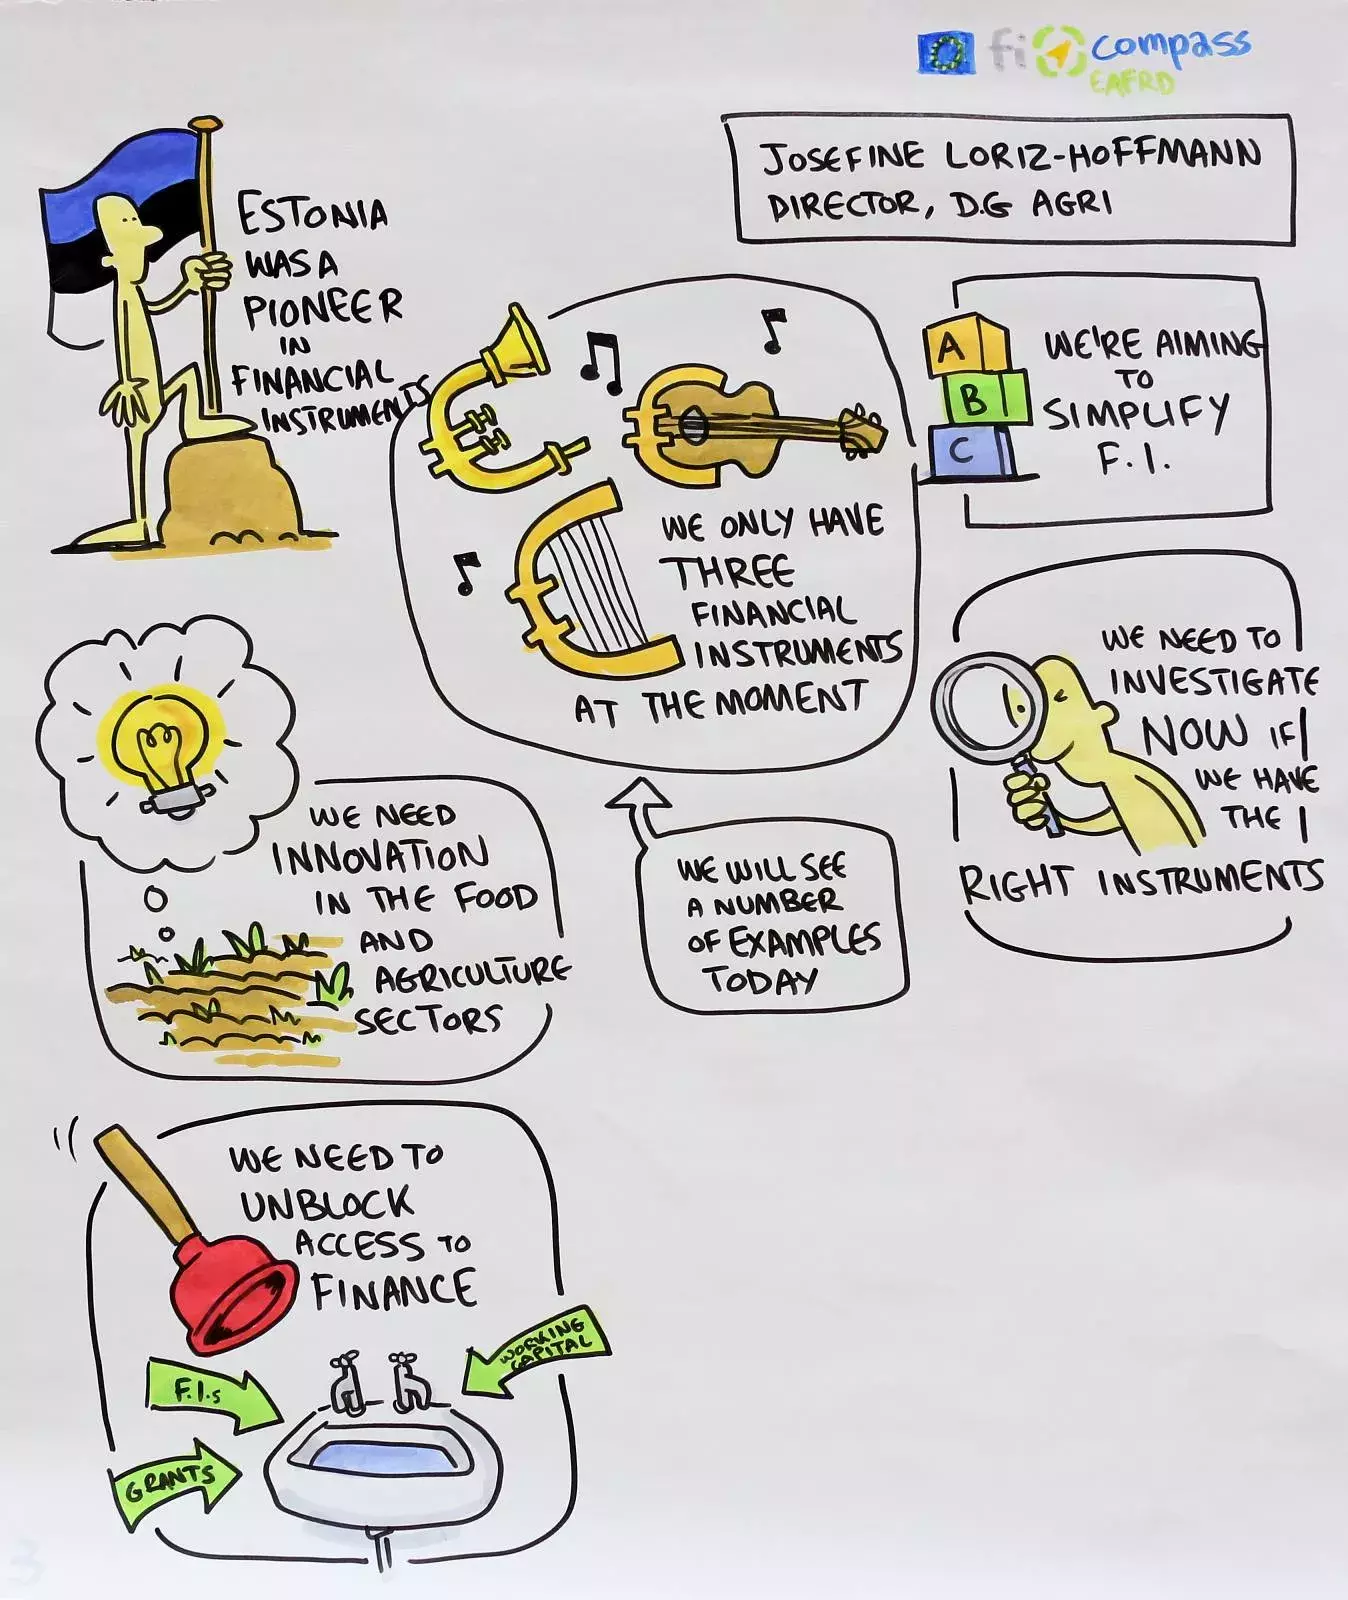 fi compass
EAFRD
JOSEFINE LORIZ-HOFFMANN
DIRECTOR, D.G AGRI
ESTONIA
WAS A
PIONEER
IN
FINANCIAL
INSTRUMENTS
WE ONLY HAVE
THREE
FINANCIAL
INSTRUMENTS
AT THE MOMENT
A
B
C
WE'RE AIMING
TO
SIMPLIFY
F.I.
WE NEED TO
INVESTIGATE
NOW IF
WE HAVE
THE
RIGHT INSTRUMENTS
WE NEED
INNOVATION
IN THE FOOD
AND
AGRICULTURE
SECTORS
WE WILL SEE
A NUMBER
OF EXAMPLES
TODAY
WE NEED TO
UNBLOCK
ACCESS TO
FINANCE
WORKING
CAPITAL
F.I.s
GRANTS
3